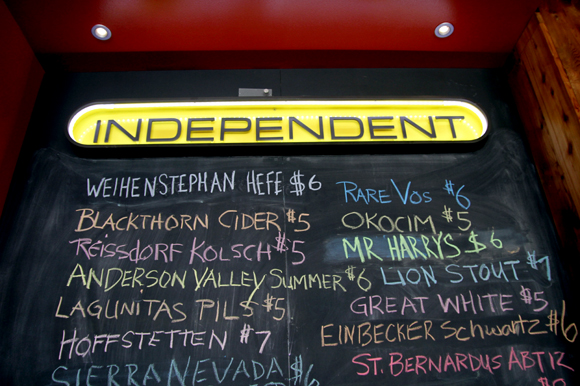 INDEPENDENT
WEIHENSTEPHAN HEFE $6
BLACKTHORN CIDER $5
REISSDORF KOLSCH $5
ANDERSON VALLEY SUMMER $6
LAGUNITAS PILS $5
HOFFSTETTEN $7
SIERRA NEVADA $6
RARE VOS $6
OKOCIM $5
MR HARRYS $6
LION STOUT $7
GREAT WHITE $5
EINBECKER SCHWARTZ $6
ST. BERNARDUS ABT 12